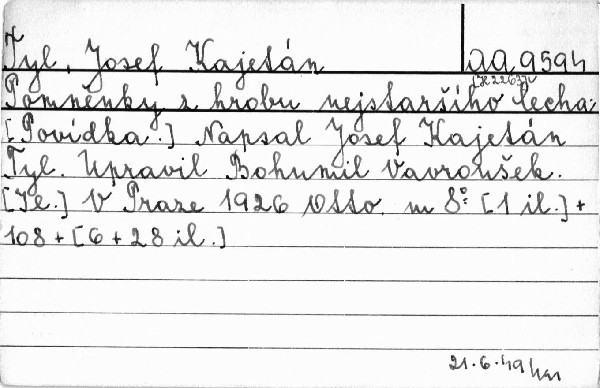 Tyl, Josef Kajetán AA 9594
Pomněnky z hrobu nejstaršího Čecha:
[Povídka.] Napsal Josef Kajetán
Tyl. Upravil Bohumil Vavroušek.
[Je.] V Praze 1926 Otto. m 8°: [1 il.] +
108 + [6 + 28 il.]
21.6.49